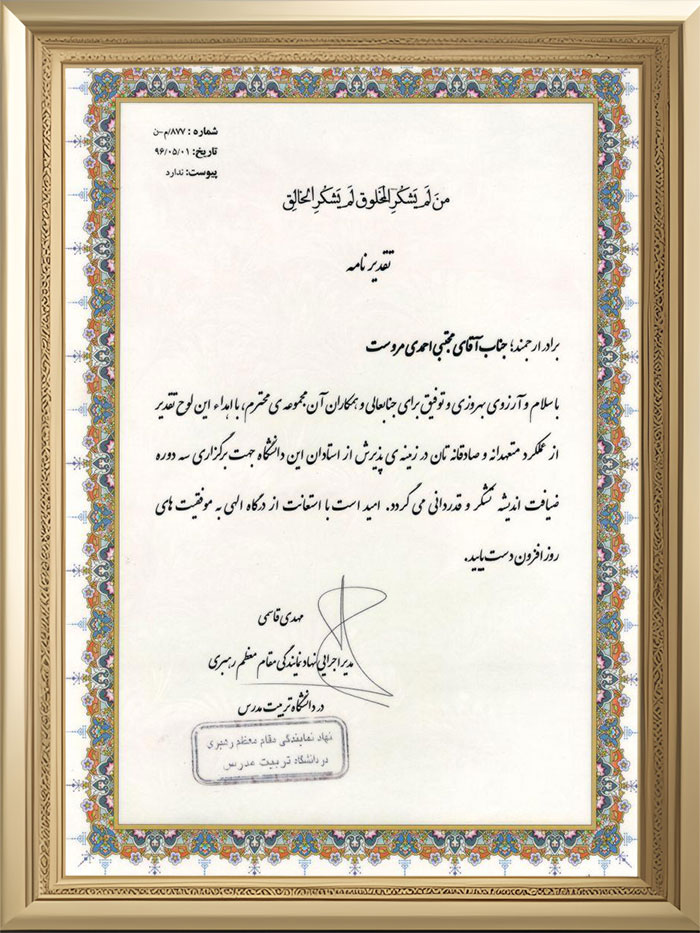 شماره : ۸۷۷/م-ن
تاریخ: ۹۶/۰۵/۰۱
پیوست: ندارد
مَن لَم یَشکُرِ المَخلوق لَم یَشکُرِ الخالِق
تقدیر نامه
برادر ارجمند؛ جناب آقای مجتبی احمدی مروست
با سلام و آرزوی بهروزی و توفیق برای جنابعالی و همکاران آن مجموعه ی محترم، با اهداء این لوح تقدیر
از عملکرد متعهدانه و صادقانه تان در زمینه ی پذیرش از استادان این دانشگاه جهت برگزاری سه دوره
ضیافت اندیشه تشکر و قدردانی می گردد. امید است با استعانت از درگاه الهی به موفقیت های
روز افزون دست یابید.
مهدی قاسمی
مدیر اجرایی نهاد نمایندگی مقام معظم رهبری
در دانشگاه تربیت مدرس
نهاد نمایندگی مقام معظم رهبری
در دانشگاه تربیت مدرس